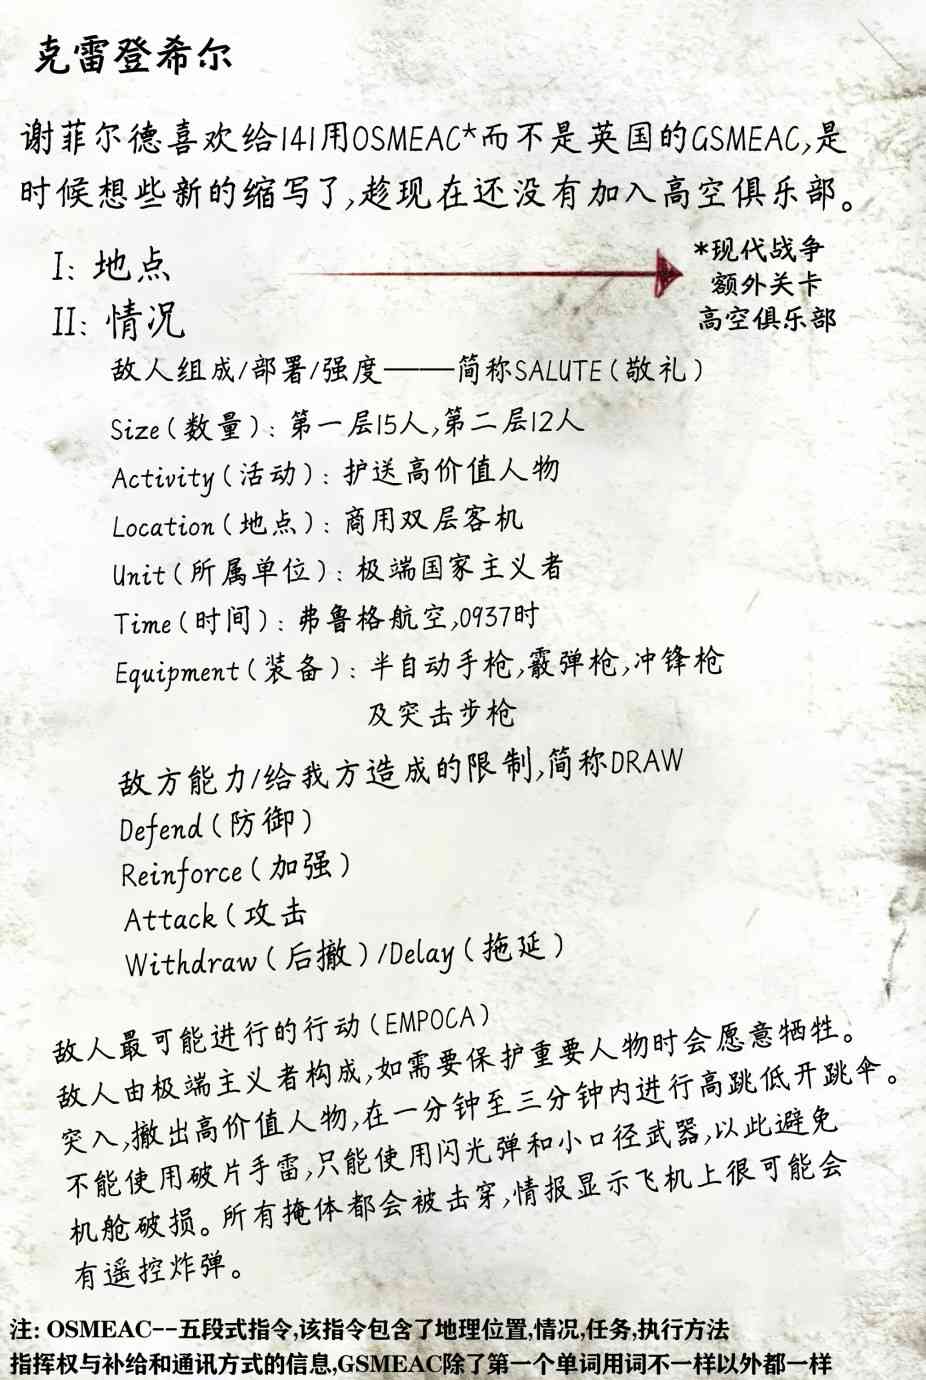 克雷登希尔
谢菲尔德喜欢给141用OSMEAC*而不是英国的GSMEAC,是
时候想些新的缩写了,趁现在还没有加入高空俱乐部。
I: 地点
*现代战争
额外关卡
高空俱乐部
II: 情况
敌人组成/部署/强度————简称SALUTE(敬礼)
Size(数量): 第一层15人,第二层12人
Activity(活动): 护送高价值人物
Location(地点): 商用双层客机
Unit(所属单位): 极端国家主义者
Time(时间): 弗鲁格航空,0937时
Equipment(装备): 半自动手枪,霰弹枪,冲锋枪
及突击步枪
敌方能力/给我方造成的限制,简称DRAW
Defend(防御)
Reinforce(加强)
Attack(攻击
Withdraw(后撤)/Delay(拖延)
敌人最可能进行的行动(EMPOCA)
敌人由极端主义者构成,如需要保护重要人物时会愿意牺牲。
突入,撤出高价值人物,在一分钟至三分钟内进行高跳低开跳伞。
不能使用破片手雷,只能使用闪光弹和小口径武器,以此避免
机舱破损。所有掩体都会被击穿,情报显示飞机上很可能会
有遥控炸弹。
注: OSMEAC--五段式指令,该指令包含了地理位置,情况,任务,执行方法
指挥权与补给和通讯方式的信息,GSMEAC除了第一个单词用词不一样以外都一样